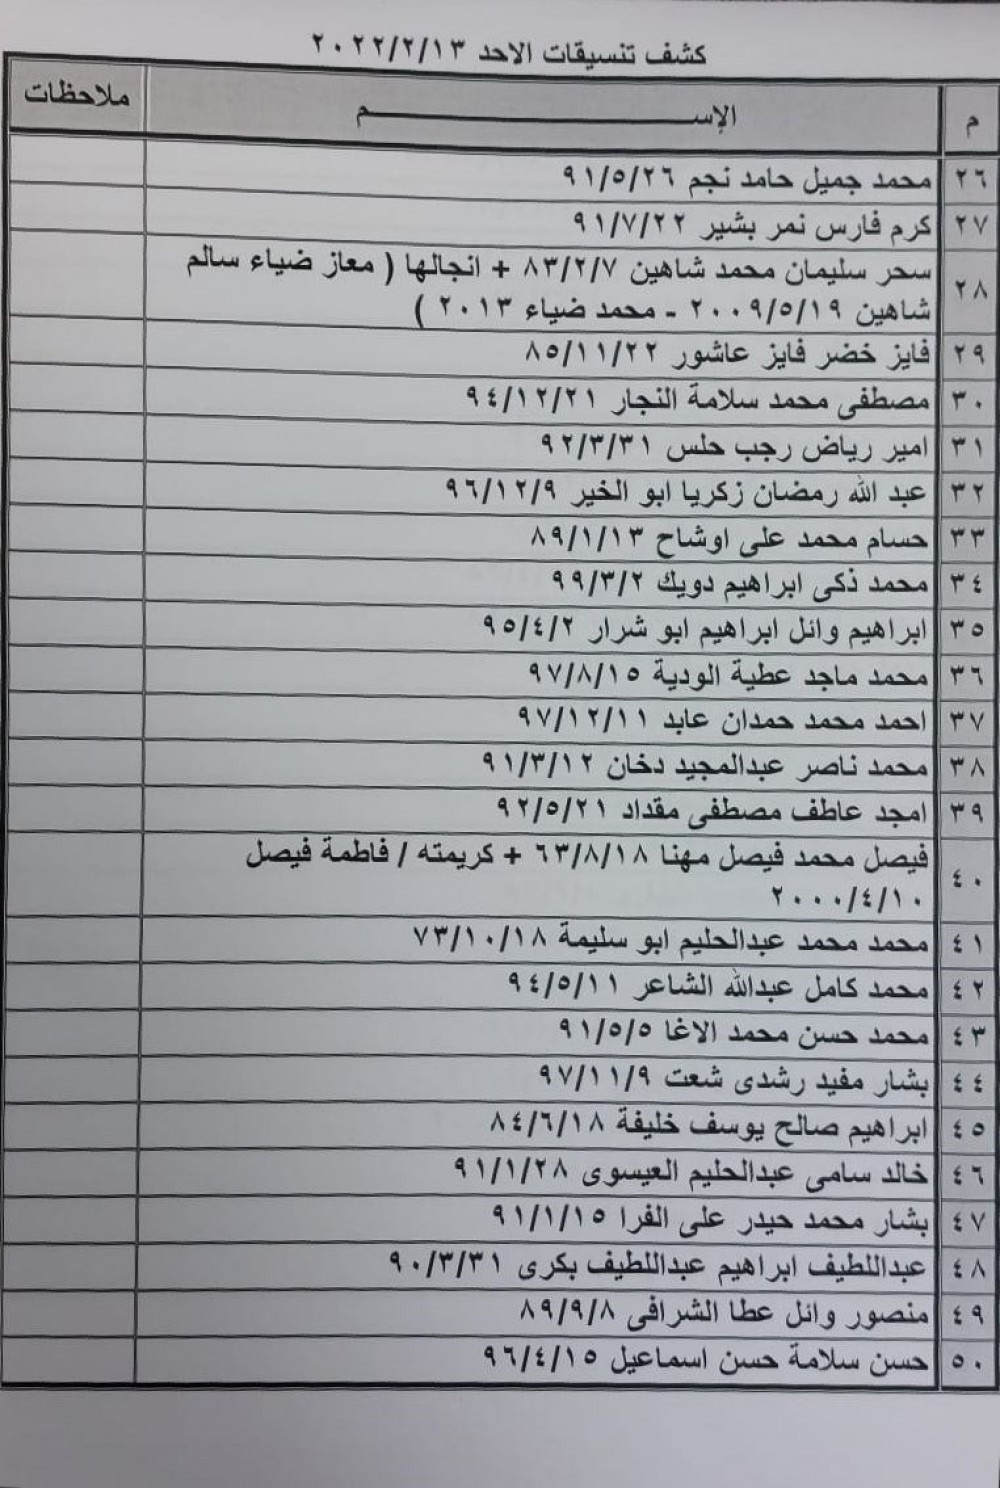 كشف تنسيقات الاحد ٢٠٢٢/٢/١٣
م الإســـــــــــــــم ملاحظات
٢٦ محمد جميل حامد نجم ٩١/٥/٢٦
٢٧ كرم فارس نمر بشير ٩١/٧/٢٢
٢٨ سحر سليمان محمد شاهين ٨٣/٢/٧ + انجالها ( معاز ضياء سالم
شاهين ٢٠٠٩/٥/١٩ - محمد ضياء ٢٠١٣ )
٢٩ فايز خضر فايز عاشور ٨٥/١١/٢٢
٣٠ مصطفى محمد سلامة النجار ٩٤/١٢/٢١
٣١ امير رياض رجب حلس ٩٢/٣/٣١
٣٢ عبد الله رمضان زكريا ابو الخير ٩٦/١٢/٩
٣٣ حسام محمد على اوشاح ٨٩/١/١٣
٣٤ محمد ذكى ابراهيم دويك ٩٩/٣/٢
٣٥ ابراهيم وائل ابراهيم ابو شرار ٩٥/٤/٢
٣٦ محمد ماجد عطية الودية ٩٧/٨/١٥
٣٧ احمد محمد حمدان عابد ٩٧/١٢/١١
٣٨ محمد ناصر عبدالمجيد دخان ٩١/٣/١٢
٣٩ امجد عاطف مصطفى مقداد ٩٢/٥/٢١
٤٠ فيصل محمد فيصل مهنا ٦٣/٨/١٨ + كريمته / فاطمة فيصل
٢٠٠٠/٤/١٠
٤١ محمد محمد عبدالحليم ابو سليمة ٧٣/١٠/١٨
٤٢ محمد كامل عبدالله الشاعر ٩٤/٥/١١
٤٣ محمد حسن محمد الاغا ٩١/٥/٥
٤٤ بشار مفيد رشدى شعت ٩٧/١١/٩
٤٥ ابراهيم صالح يوسف خليفة ٨٤/٦/١٨
٤٦ خالد سامى عبدالحليم العيسوى ٩١/١/٢٨
٤٧ بشار محمد حيدر على الفرا ٩١/١/١٥
٤٨ عبداللطيف ابراهيم عبداللطيف بكرى ٩٠/٣/٣١
٤٩ منصور وائل عطا الشرافى ٨٩/٩/٨
٥٠ حسن سلامة حسن اسماعيل ٩٦/٤/١٥